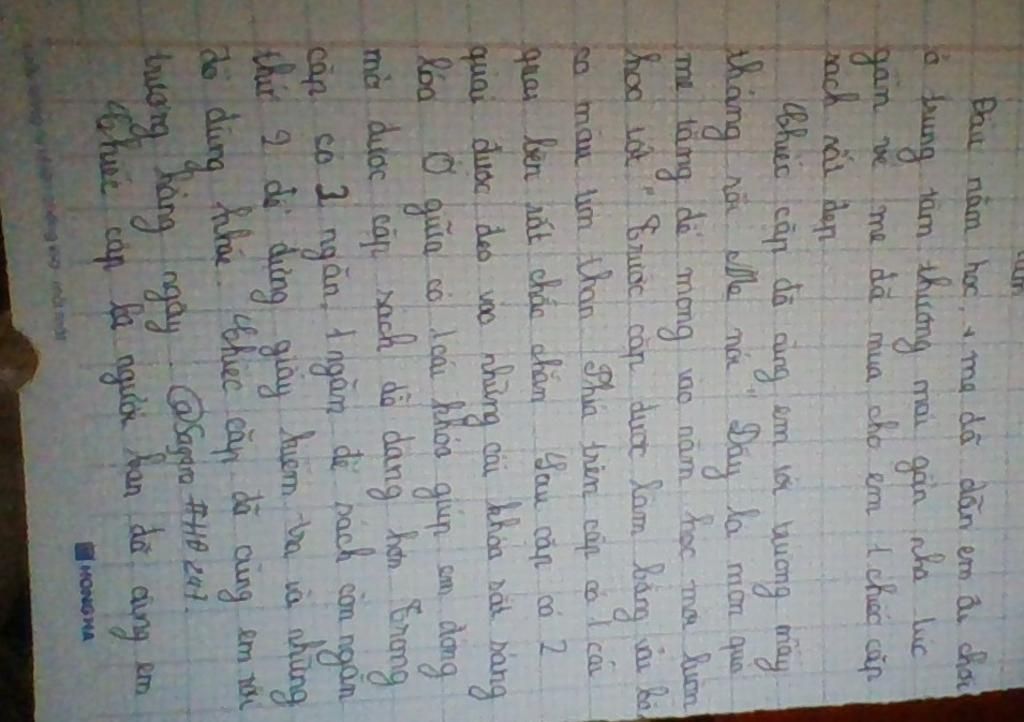 Đầu năm học, mẹ đã dẫn em đi chơi
ở trung tâm thương mại gần nhà lúc
gần về mẹ đã mua cho em 1 chiếc cặp
sách rất đẹp
Chiếc cặp đã cùng em tới trường mấy
tháng rồi Mẹ nói "Đây là món quà
mẹ tặng để mong vào năm học mới luôn
học tốt" Trước cặp được làm bằng vải bò
có màu tím than Phía trên cặp có 1 cái
quai bền rất chắc chắn Sau cặp có 2
quai được đeo vào những cái khóa sắt sáng
lóa Ở giữa có 1 cái khóa giúp em đóng
mở được cặp sách dễ dàng hơn Trong
cặp có 3 ngăn, 1 ngăn để sách còn ngăn
thứ 2 để đựng giấy kiểm tra và những
đồ dùng khác. Chiếc cặp đã cùng em tới
trường hằng ngày. @Sagira #HĐ247.
Chiếc cặp là người bạn đã cùng em
HONG HA